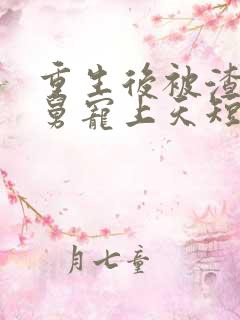 重生後被渣
舅寵上天短
月七童